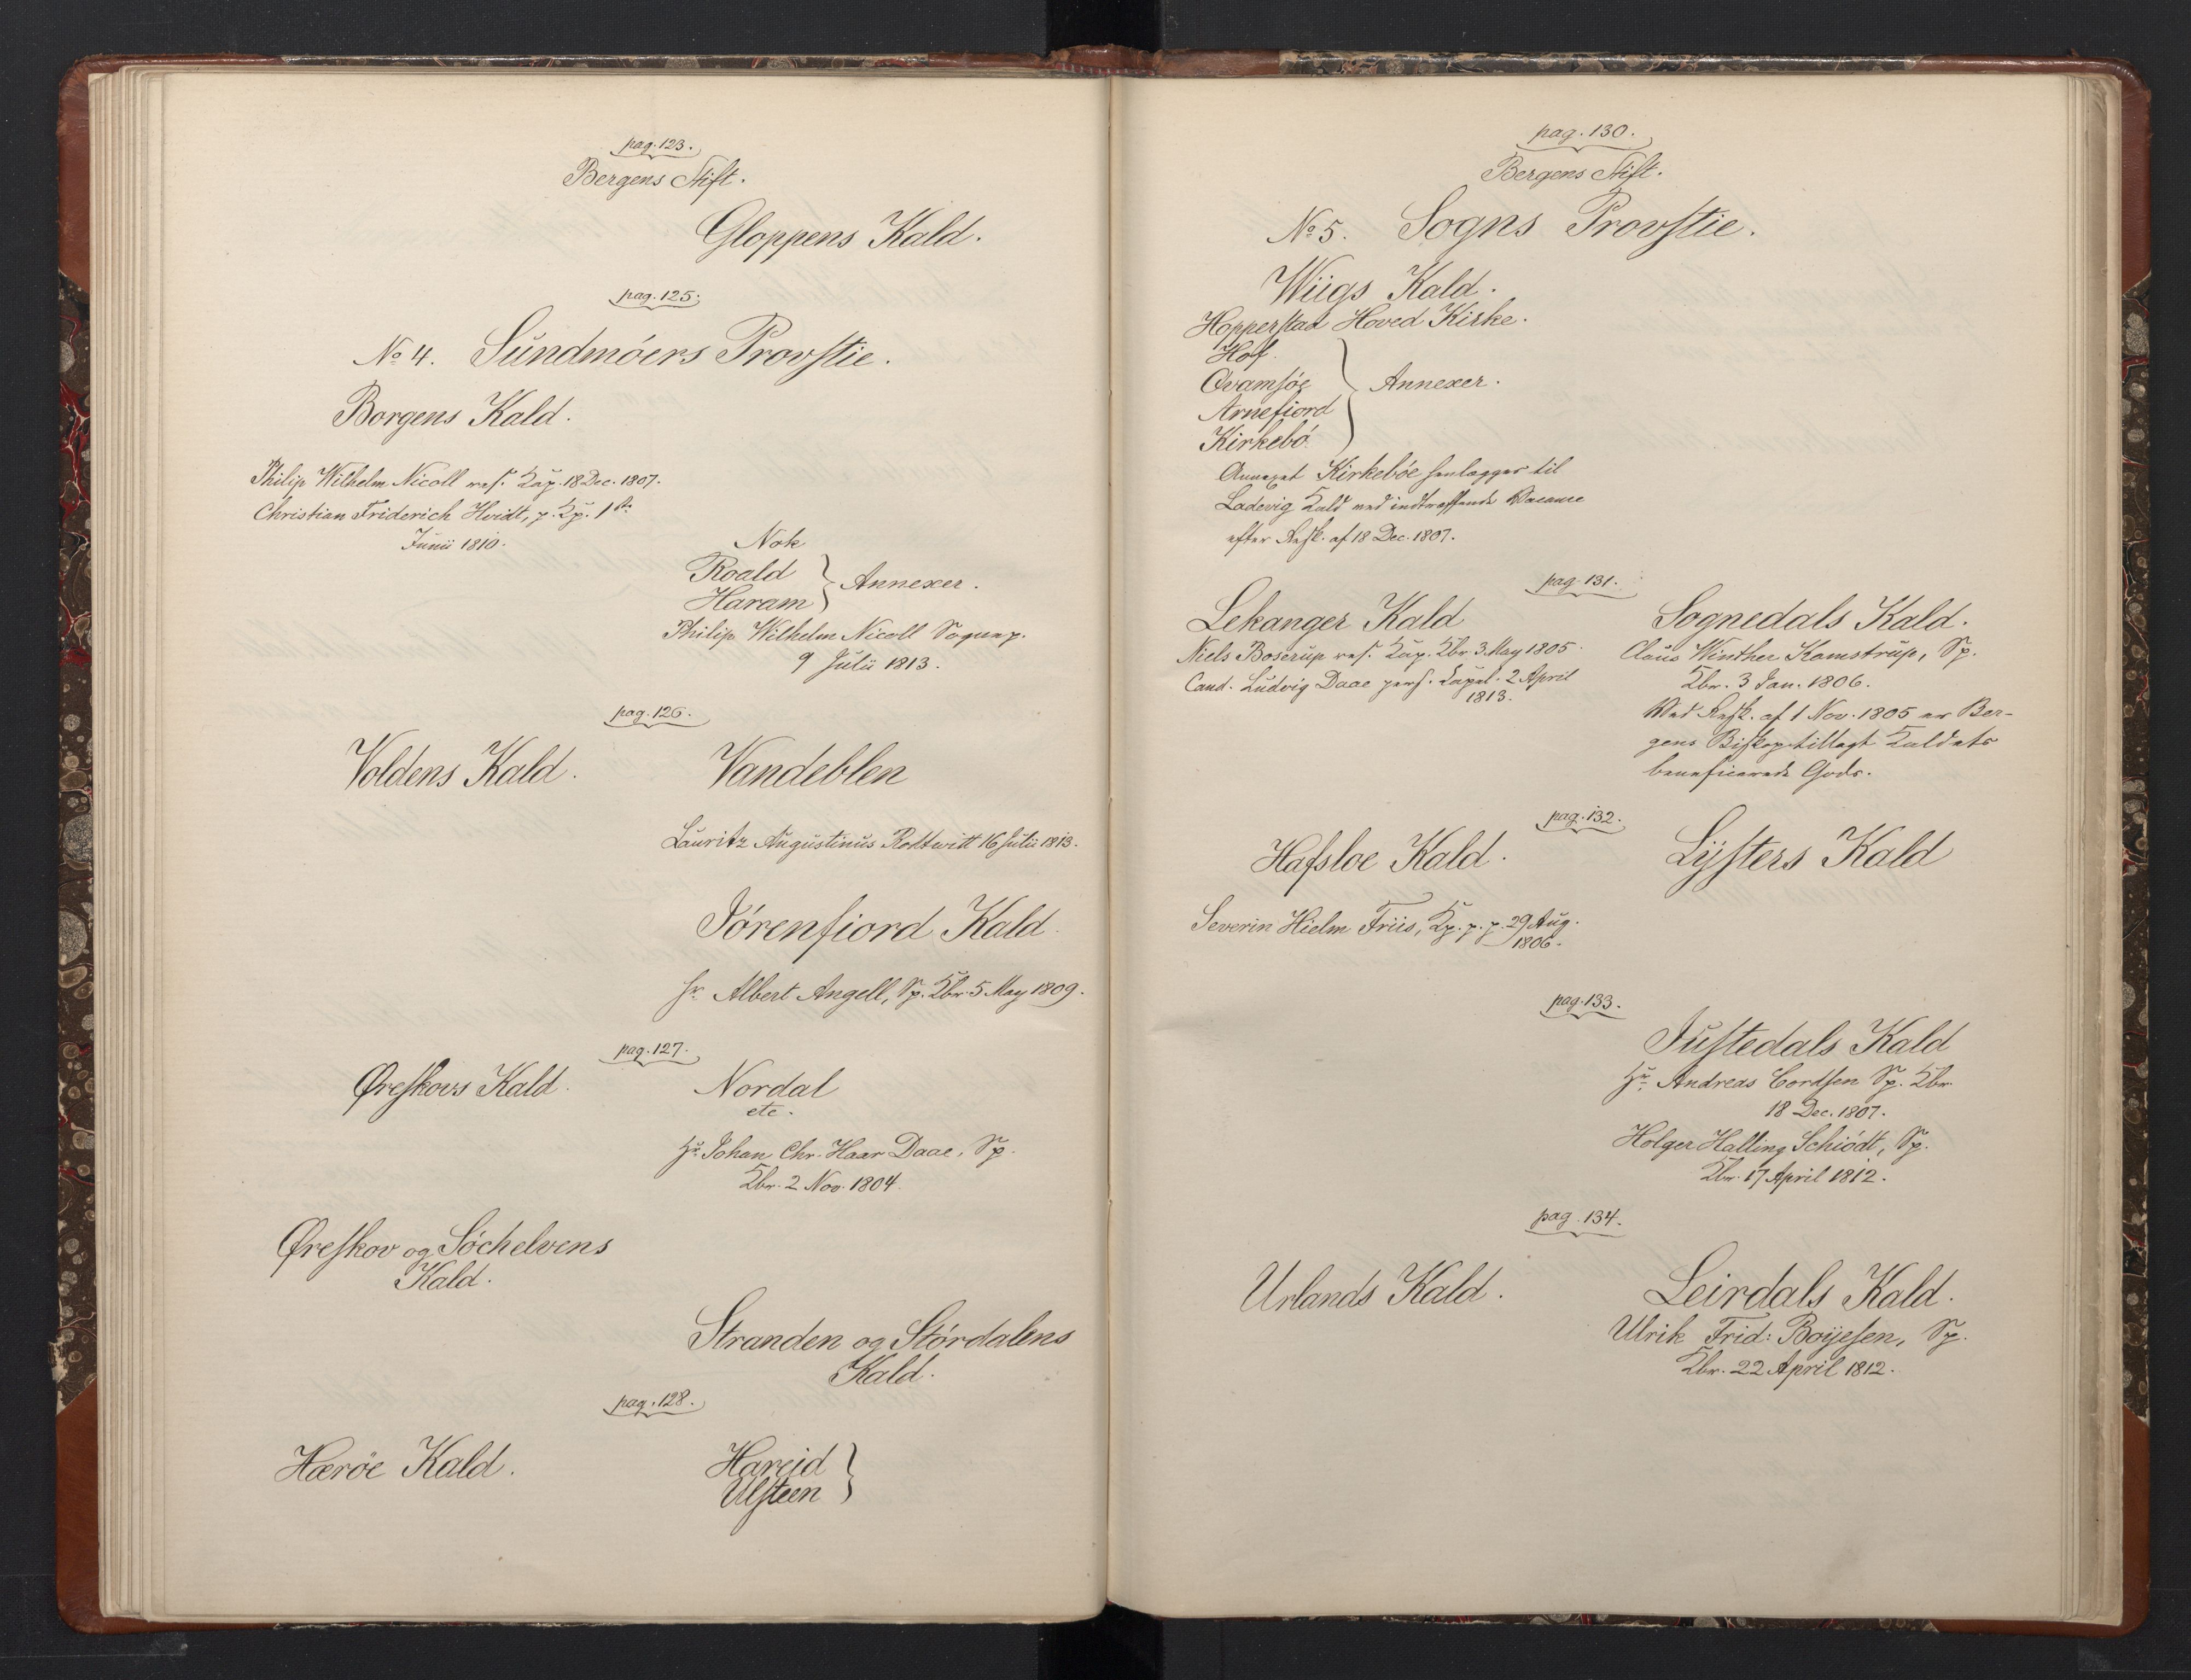 pag. 123.
Bergens Stift.
Gloppens Kald.
pag. 125.
No 4. Sundmöers Provstie.
Borgens Kald.
Philip Wilhelm Nicoll res. Kap. 18 Dec. 1807.
Christian Friderich Hvidt, p. Kp. 1ste
Junii 1810.
Nok
Roald
Haram } Annexer.
Philip Wilhelm Nicoll Sognep.
9 Julii 1813.
pag. 126.
Voldens Kald.
Vandeblen
Lauritz Augustinus Rottwitt 16 Julii 1813.
Jörenfiord Kald.
Hr. Albert Angell, Sp. Kbr. 5 May 1809.
pag. 127.
Øreskovs Kald.
Nordal
etc.
Hr. Johan Chr. Haar Daae, Sp.
Kbr. 2 Nov. 1804.
Øreskov og Söchelvens
Kald.
Stranden og Stördalens
Kald.
pag. 128.
Hæröe Kald.
Hareid
Ulsteen }
pag. 130.
Bergens Stift.
No 5. Sogns Provstie.
Wiigs Kald.
Hopperstad Hoved Kirke.
Hof.
Qvamsöe
Arnefiord
Kirkebö } Annexer.
Annexet Kirkeböe henlægges til
Ladevig Kald ved indtræffende Vacance
efter Resk. af 18 Dec. 1807.
pag. 131.
Lekanger Kald
Niels Boserup res. Kap. Kbr. 3 May 1805.
Cand. Ludvig Daae pers. Kapel. 2 April
1813.
Sognedals Kald.
Claus Winther Kamstrup, Sp.
Kbr. 3 Jan. 1806.
Ved Resk. af 1 Nov. 1805 er Ber-
gens Biskop tillagt Kaldets
beneficerede Gods.
pag. 132.
Hafsloe Kald.
Severin Hielm Friis, Kp. p. p. 29 Aug.
1806.
Lÿsters Kald
pag. 133.
Justedals Kald
Hr. Andreas Cordsen Sp. Kbr.
18 Dec. 1807.
Holger Halling Schiödt, Sp.
Kbr. 17 April 1812.
pag. 134.
Urlands Kald.
Leirdals Kald.
Ulrik Frid: Boÿesen, Sp.
Kbr. 22 April 1812.